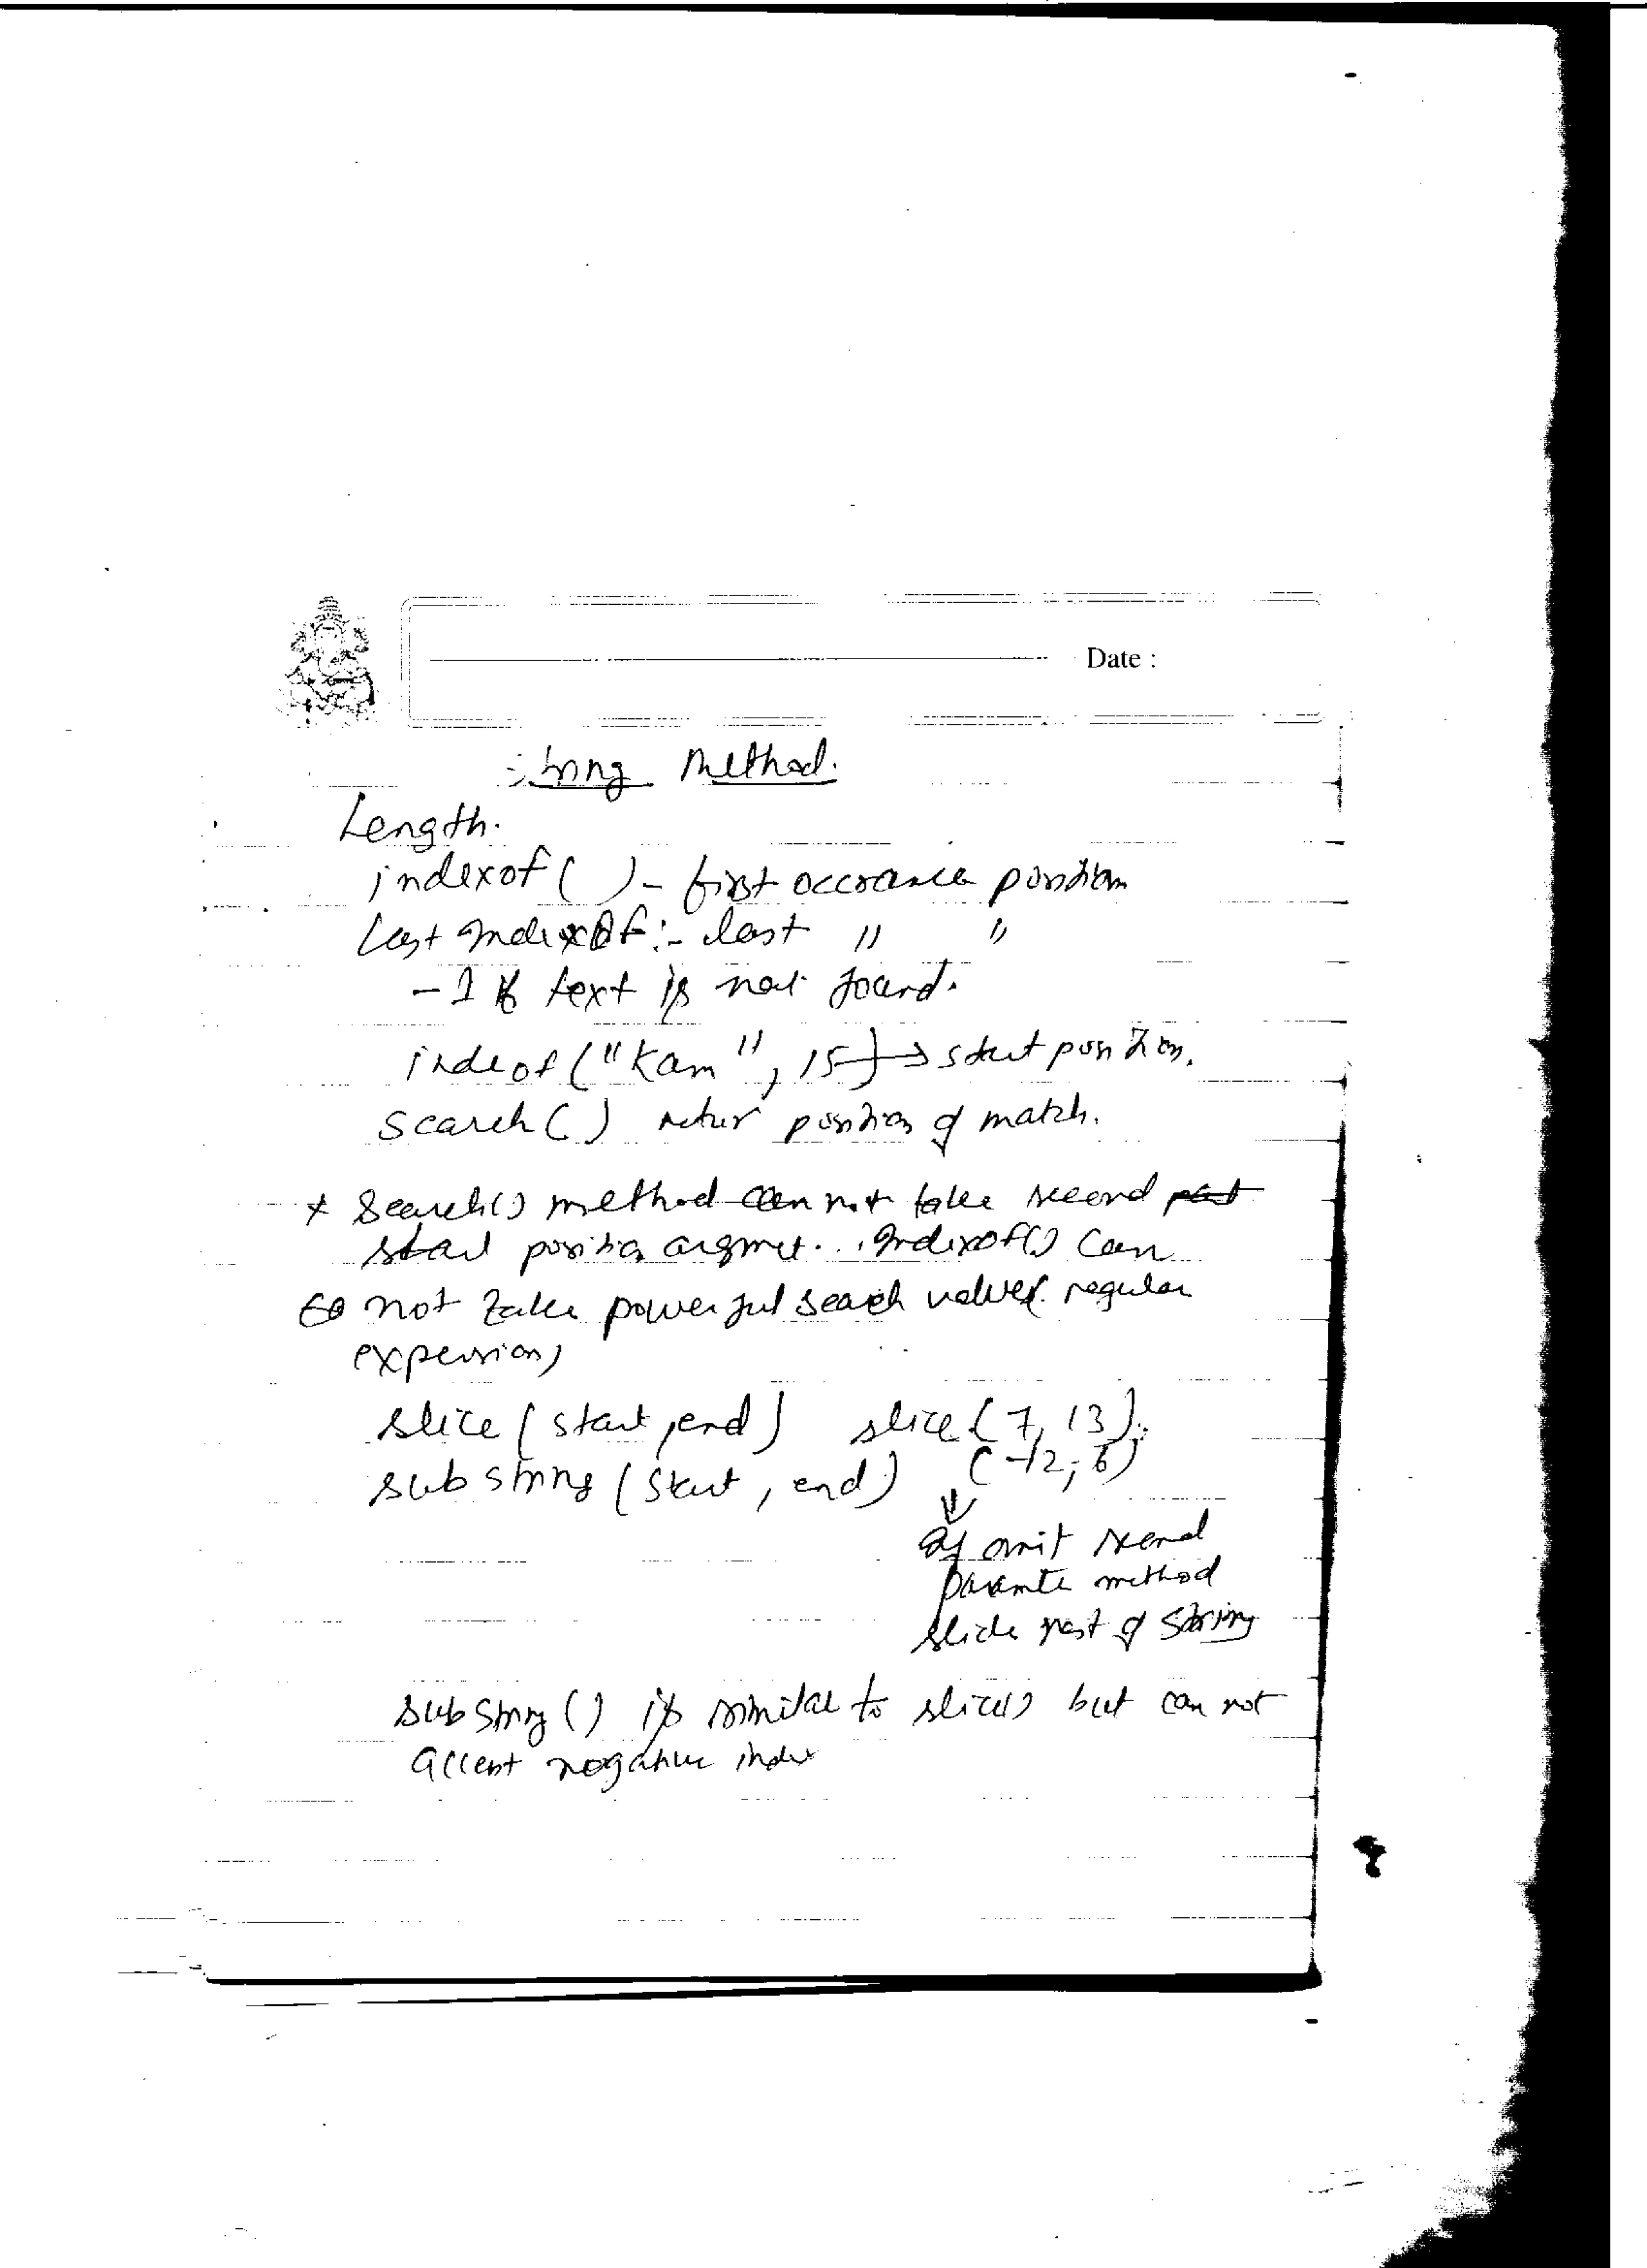 Date :
String Method.
Length.
indexof ( ) - first occrance position
Last IndexOf :- last " "
- 1 if text is not found.
indeof ("Kam", 15) → start position.
search ( ) retur position of match.
* Search() method can not take second part
start position argmet. Indexof() can
not take powerful search values regular
expersion)
slice (start, end) slice (7, 13);
substring (start, end) (-12, 6)
If omit second
paramte method
slide rest of string
substring () is similar to slice() but can not
accept negative index